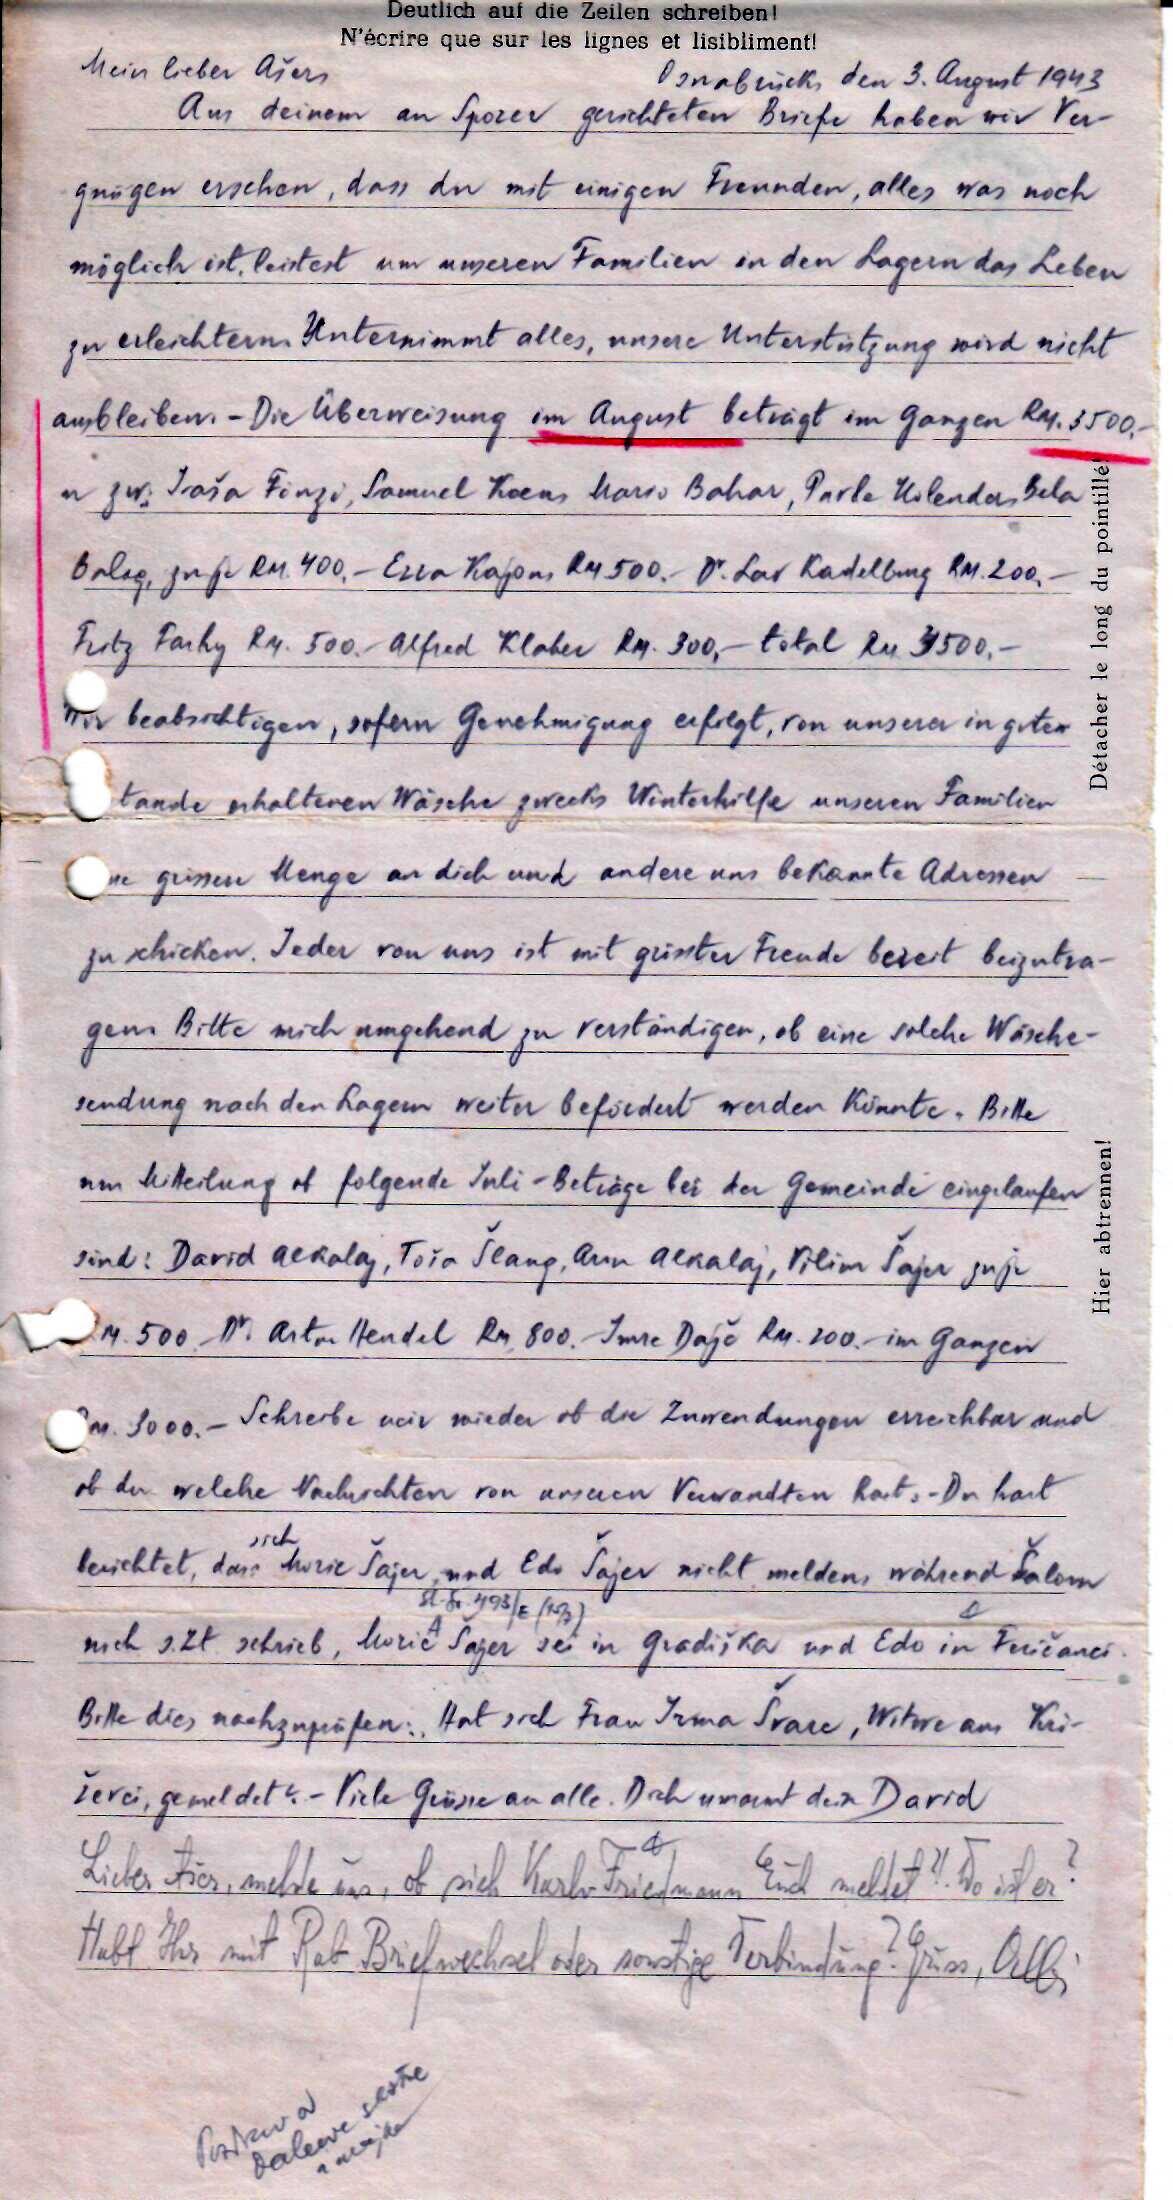 Deutlich auf die Zeilen schreiben!
N'écrire que sur les lignes et lisibliment!
Mein lieber Ašer, Osnabrück, den 3. August 1943
Aus deinem an Spozer gerichteten Briefe haben wir Ver-
gnügen ersehen, dass du mit einigen Freunden, alles was noch
möglich ist, leistest um unseren Familien in den Lagern das Leben
zu erleichtern. Unternimmt alles, unsere Unterstützung wird nicht
ausbleiben. - Die Überweisung im August beträgt im Ganzen RM. 3500.-
u zw: Finzi, Samuel Mario Bahar, Pavle Holender, Bela
Balog, zu je RM. 400.- Kajon RM 500.- Dr. Lav Kadelburg RM. 200.-
Fritz RM. 500.- Alfred Klaber RM. 300.- total RM 3500.-
Wir beabsichtigen, sofern Genehmigung erfolgt, von unserer in guten
tande erhaltenen Wäsche zwecks Winterhilfe unseren Familien
ne grössere Menge an dich und andere uns bekannte Adressen
zu schicken. Jeder von uns ist mit grösster Freude bereit beizutra-
gen. Bitte mich umgehend zu verständigen, ob eine solche Wäsche-
sendung nach den Lagern weiter befördert werden könnte. Bitte
um Mitteilung ob folgende Juli-Beträge bei der Gemeinde eingelaufen
sind: David Alkalaj, Toša Šlang, Alkalaj, Vilim Šajer zu je
M. 500 Dr. Hendel RM 800.- Imre RM. 200.- im Ganzen
M. 3000.- Schreibe mir wieder ob die Zuwendungen erreichbar und
ob du welche Nachrichten von unseren Verwandten hast. - Du hast
berichtet, dass sich Moric Šajer und Edo Šajer nicht melden, während Šalom
mich s.Zt schrieb, Moric Šajer sei in Gradiška und Edo in Feričanci.
Bitte dies nachzuprüfen. Hat sich Frau Irma Švarc, Witwe aus Kri-
ževci, gemeldet? - Viele Grüsse an alle. Dich umarmt dein David
Lieber Ašer, melde uns, ob sich Karlo Friedmann Euch meldet?! Wo ist er?
Habt Ihr mit Rab Briefwechsel oder sonstige Verbindung? Gruss,
Pozdrav od
daleove sestre
Détacher le long du pointillé!
Hier abtrennen!